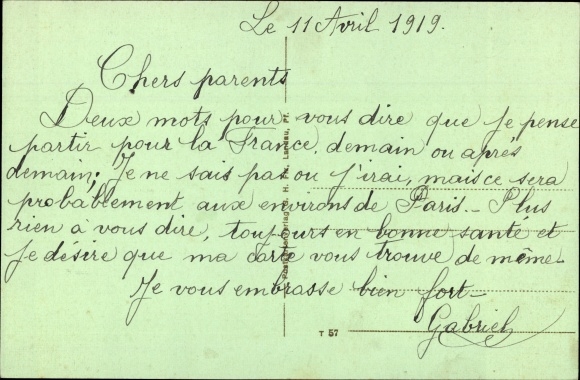 Le 11 Avril 1919.
Chers parents
Deux mots pour vous dire que je pense
partir pour la France, demain ou après
demain; Je ne sais pas ou j'irai, mais ce sera
probablement aux environs de Paris.- Plus
rien à vous dire, toujours en bonne santé et
je désire que ma carte vous trouve de même-
Je vous embrasse bien fort-
Gabriel
H. Landau, Pf.
T 57